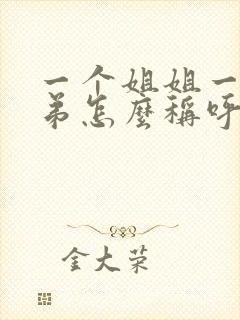 一个姐姐一
弟怎麼稱呼
金大荣